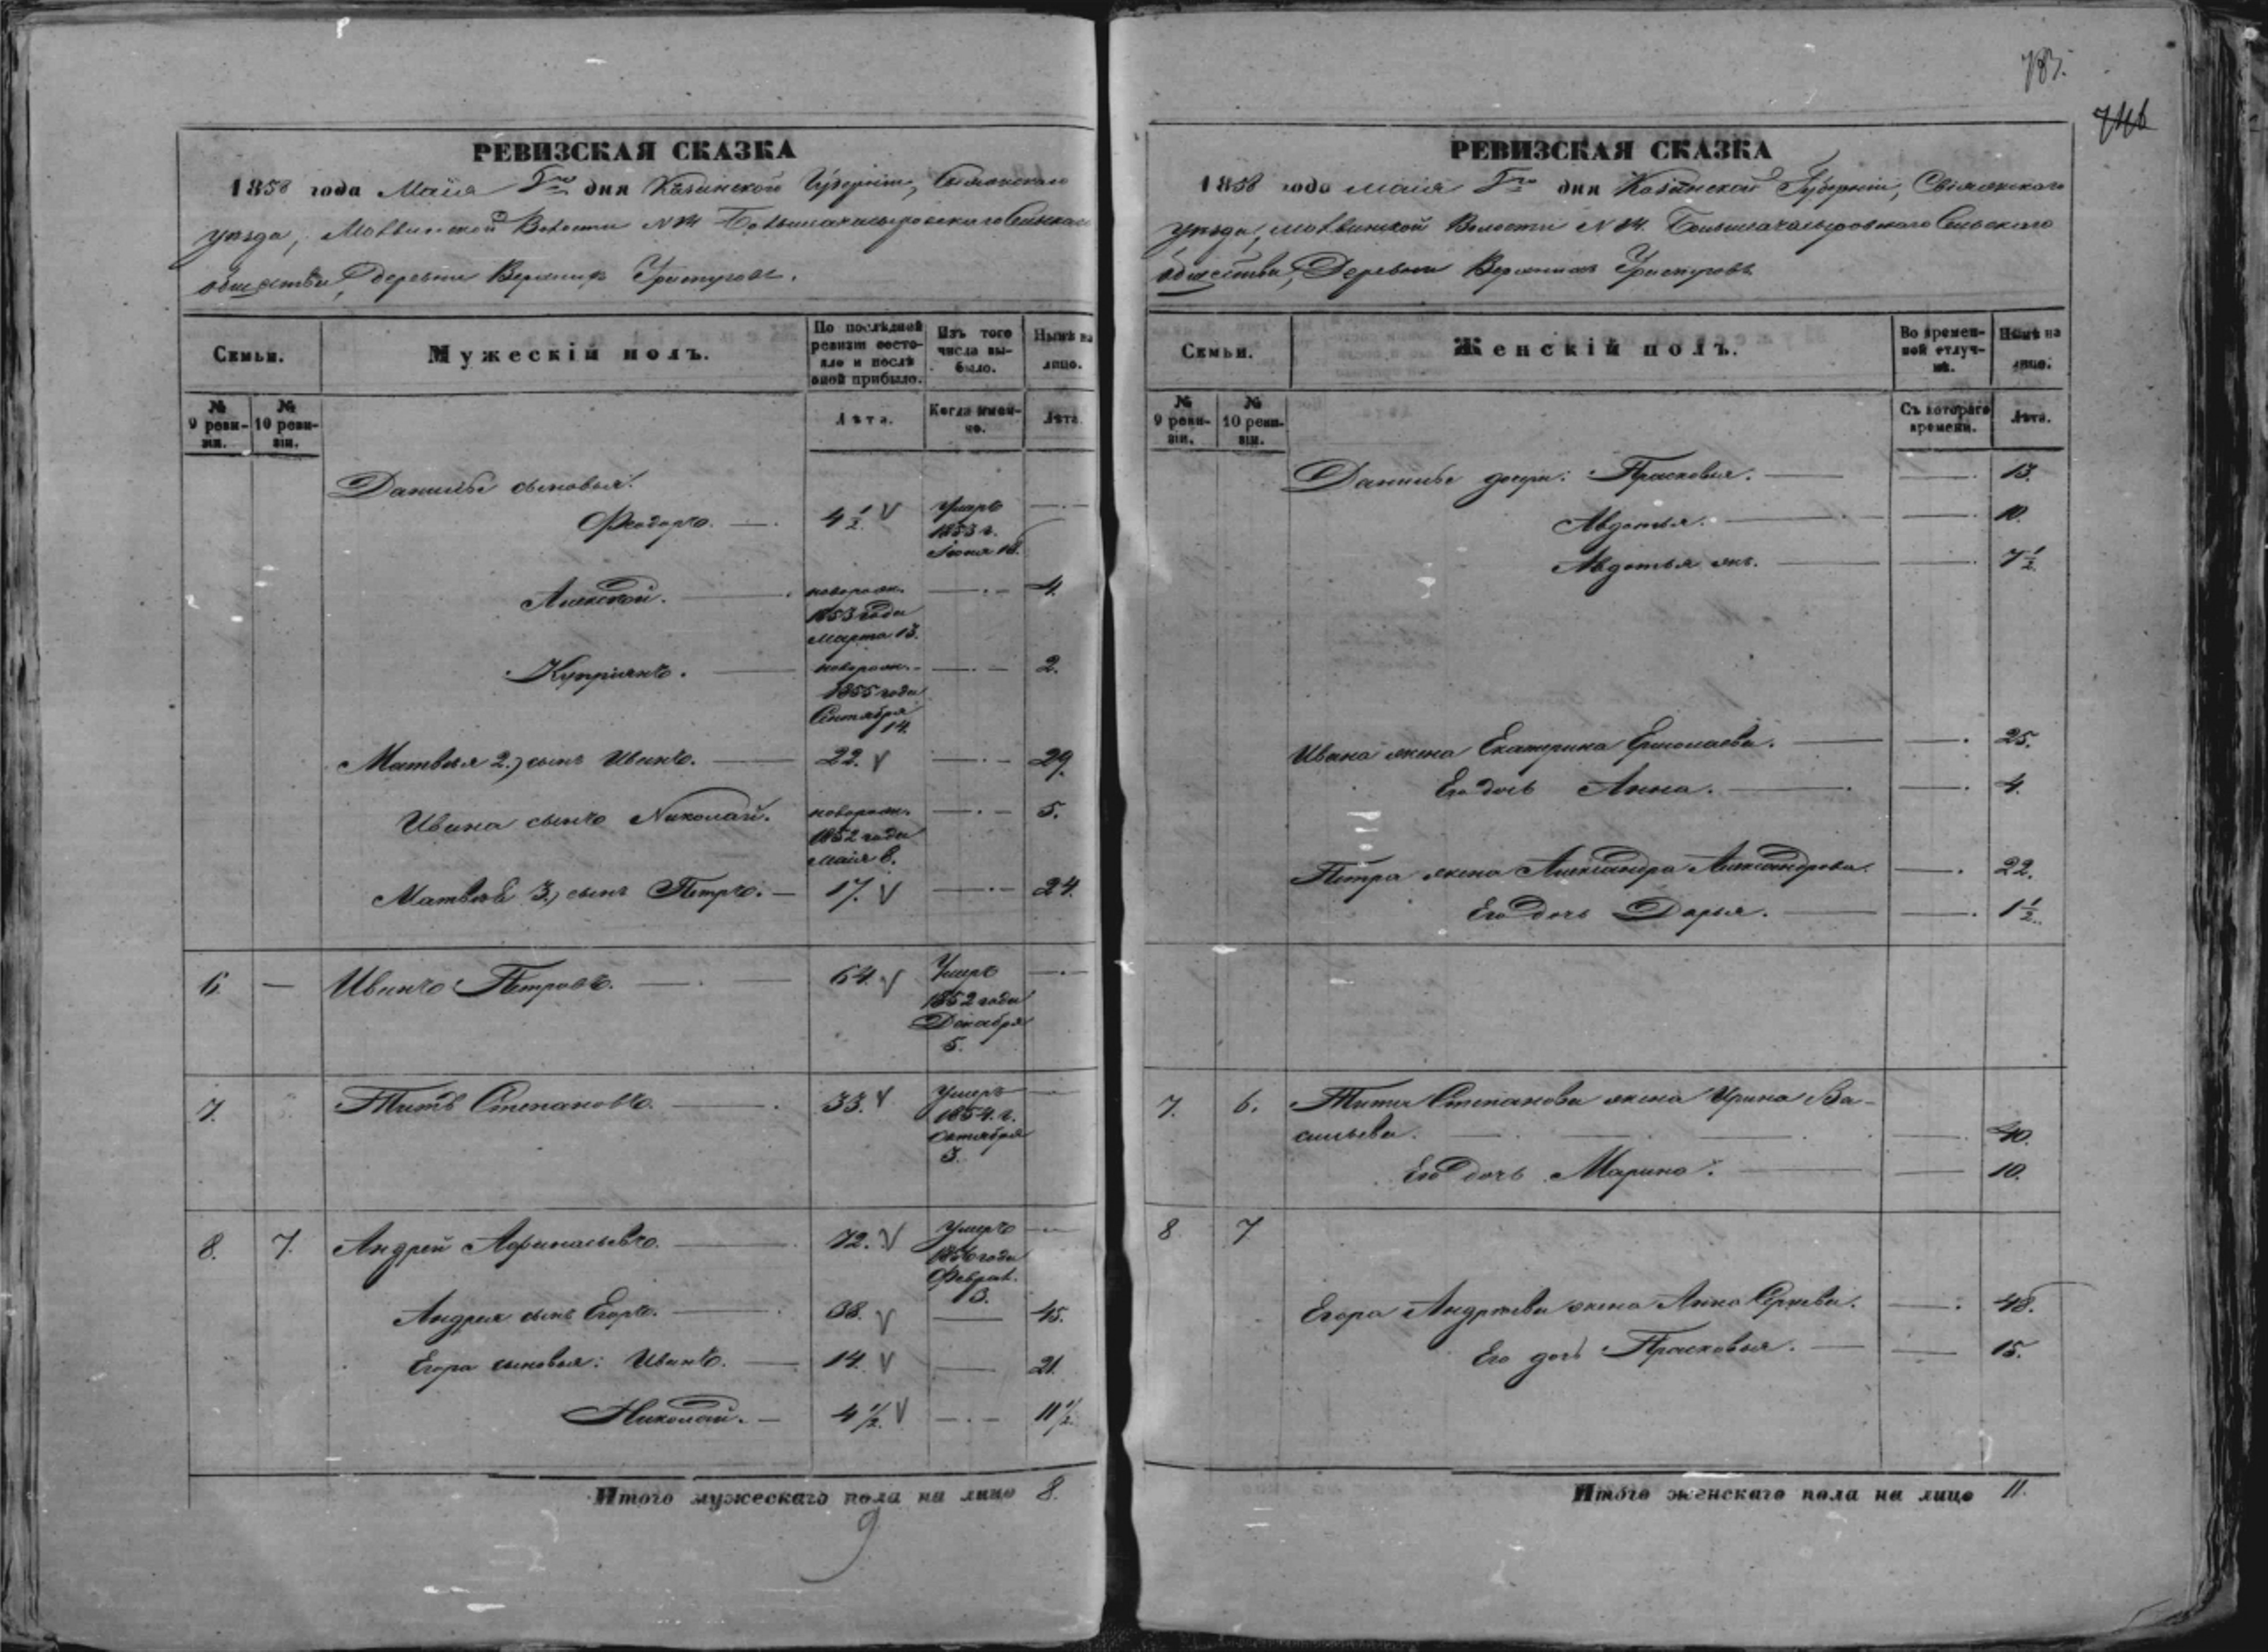 783.
746
РЕВИЗСКАЯ СКАЗКА
1858 года Маія дня Казанской Губерніи, Свіяжскаго
уѣзда, Волости №
общества, деревни
Семьи.
Мужескій полъ.
По послѣдней ревизіи состояло и послѣ оной прибыло.
Изъ того числа выбыло.
Нынѣ на лицо.
№ 9 ревизіи.
№ 10 ревизіи.
Лѣта.
Когда именно.
Лѣта
Данилы сыновья:
Ѳеодоръ. 4 1/2. Умеръ 1853 г. Іюня 18.
Алексѣй. новорожд. 1853 года Марта 13. 4.
Купріянъ. новорожд. 1855 года Сентября 14. 2.
Матвѣя 2.) сынъ Иванъ. 22. 29.
Ивана сынъ Николай. новорожд. 1852 года Маія 6. 5.
Матвѣя 3.) сынъ Петръ. 17. 24.
6. Иванъ Петровъ. 64. Умеръ 1852 года Декабря 5.
7. Титъ Степановъ. 33. Умеръ 1854. г. Октября 3.
8. 7. Андрей Афанасьевъ. 72. Умеръ 1856 года Феврал. 13.
Андрея сынъ Егоръ. 38. 45.
Егора сыновья: Иванъ. 14. 21.
Николай. 4 1/2. 11 1/2.
Итого мужескаго пола на лицо 8.
9
РЕВИЗСКАЯ СКАЗКА
1858 года маія дня Казанской Губерніи, Свіяжскаго
уѣзда, Волости № Сельскаго
общества, Деревни
Семьи.
Женскій полъ.
Во временной отлучкѣ.
Нынѣ на лицо.
№ 9 ревизіи.
№ 10 ревизіи.
Съ котораго времени.
Лѣта.
Данилы дочери: Прасковья. 13.
Авдотья. 10.
Авдотья же. 7 1/2
Ивана жена Екатерина Ермолаева. 25.
Его дочь Анна. 4.
Петра жена Александра Александрова. 22.
Его дочь Дарья. 1 1/2.
7. 6. Тита Степанова жена Ирина Ва-
сильева. 40.
Его дочь Марина. 10.
8 7
Егора Андреева жена Анна Сергеева. 48.
Его дочь Прасковья. 15.
Итого женскаго пола на лицо 11.